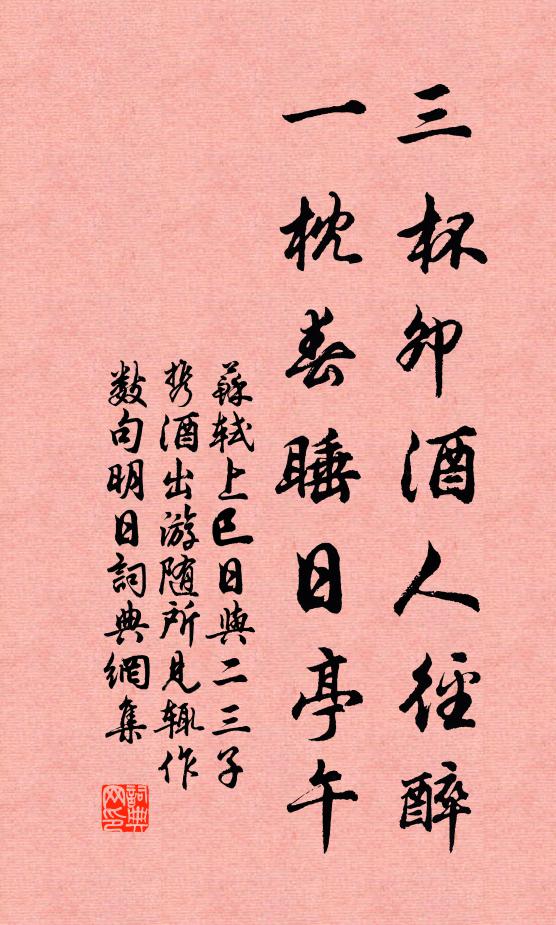 三杯卯酒人径醉
一枕春睡日亭午
蘇軾上巳日與二三子
携酒出游随所見輒作
数句明日詞典網集
詞典
网印